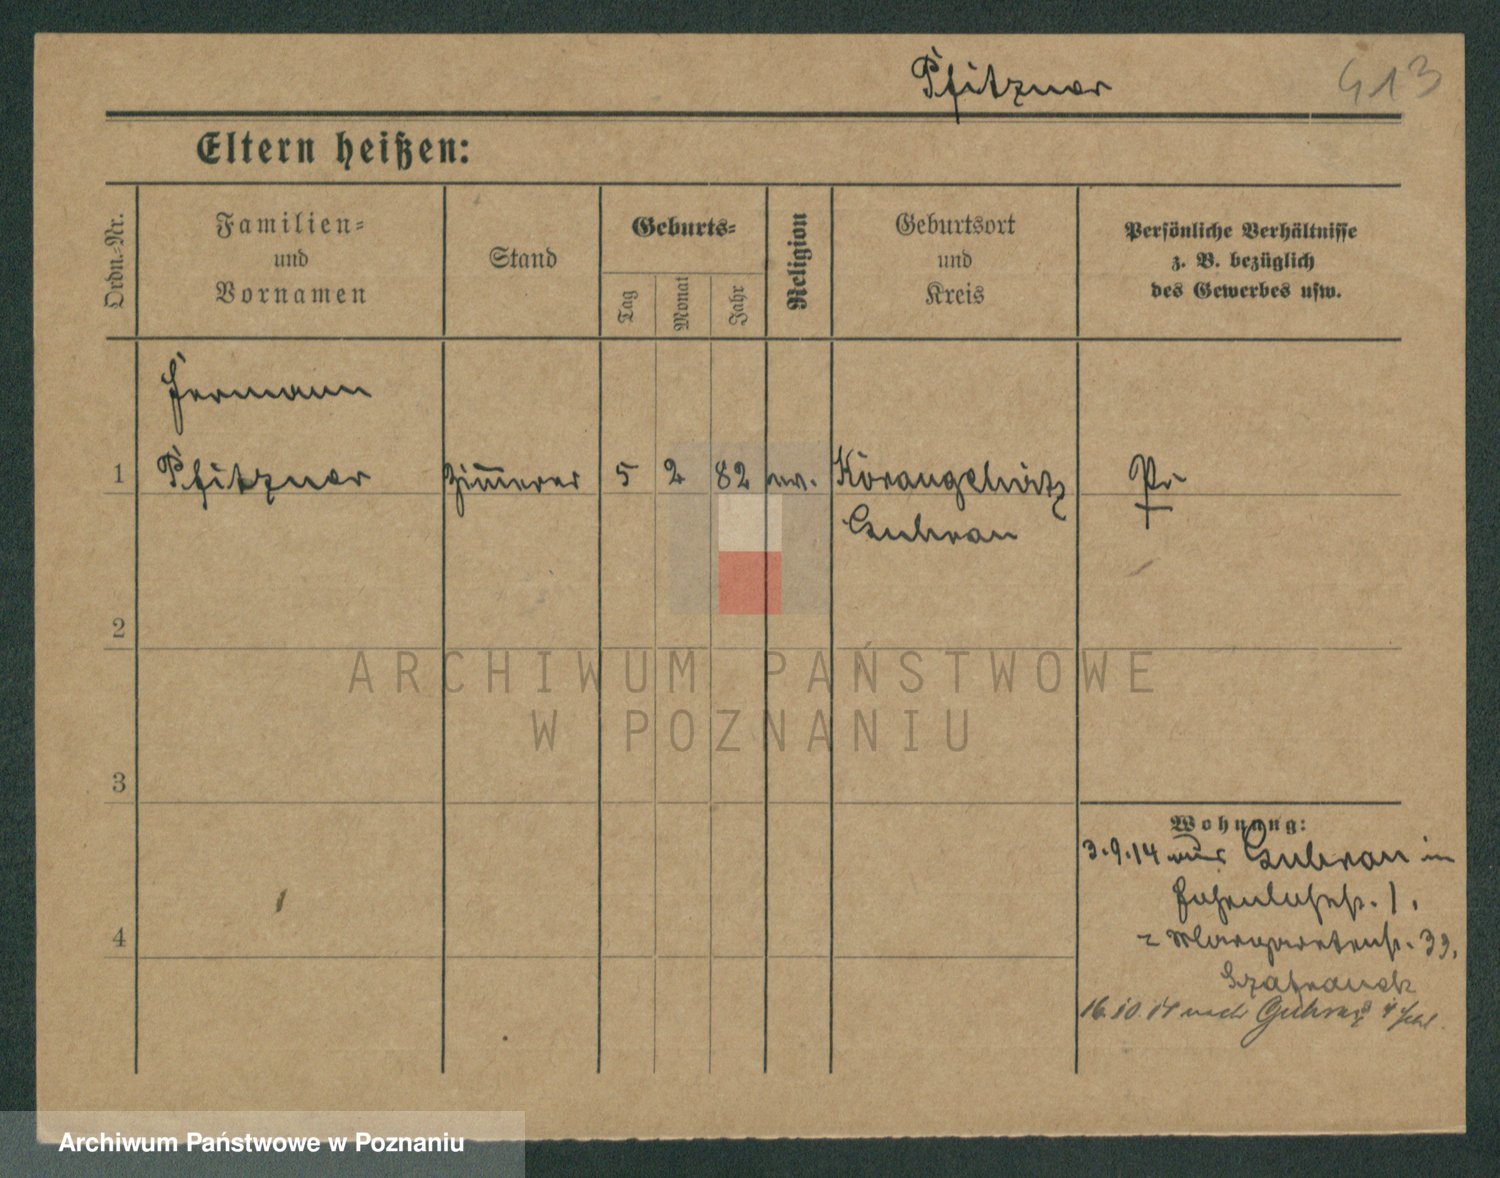 Pfitzner
413
Eltern heißen:
Ordn.-Nr.
Familien=
und
Vornamen
Stand
Geburts=
Tag
Monat
Jahr
Religion
Geburtsort
und
Kreis
Persönliche Verhältnisse
z. B. bezüglich
des Gewerbes usw.
Hermann
1 Pfitzner Zimmerer 5 2 82 ev. Pr
Guhrau
2
3
4
ARCHIWUM PAŃSTWOWE
W POZNANIU
Wohnung:
3.9.14 aus Guhrau in
1.
z Margaretenstr. 39.
16.10.14 nach Guhrau
Archiwum Państwowe w Poznaniu